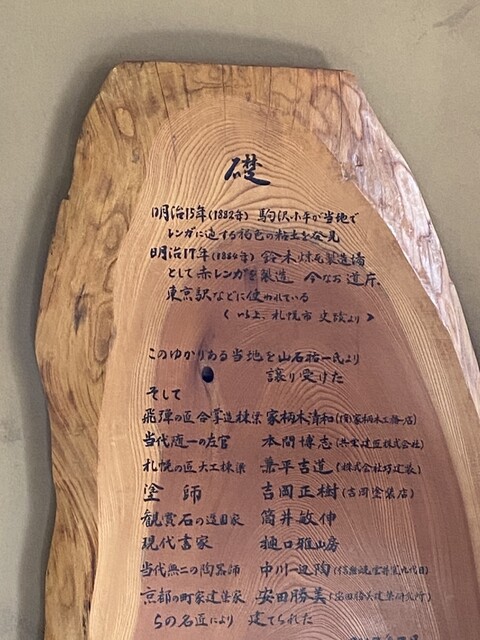 礎
明治15年(1882年) 駒沢小平が当地で
レンガに適する褐色の粘土を発見
明治17年(1884年) 鈴木煉瓦製造場
として赤レンガを製造 今なお 道庁.
東京駅などに使われている
《以上、札幌市 史跡より》
このゆかりある当地を山石祐一氏より
譲り受けた
そして
飛騨の匠合掌造棟梁 家柄木清和((有)家柄木工務店)
当代随一の左官 本間博志(共栄建匠株式会社)
札幌の匠大工棟梁 兼平吉道(株式会社巧建装)
塗 師 吉岡正樹(吉岡塗装店)
観賞石の造園家 筒井敏伸
現代書家 樋口雅山房
当代無二の陶器師 中川一辺陶
京都の町家建築家 安田勝美(安田勝美建築研究所)
らの名匠により 建てられた